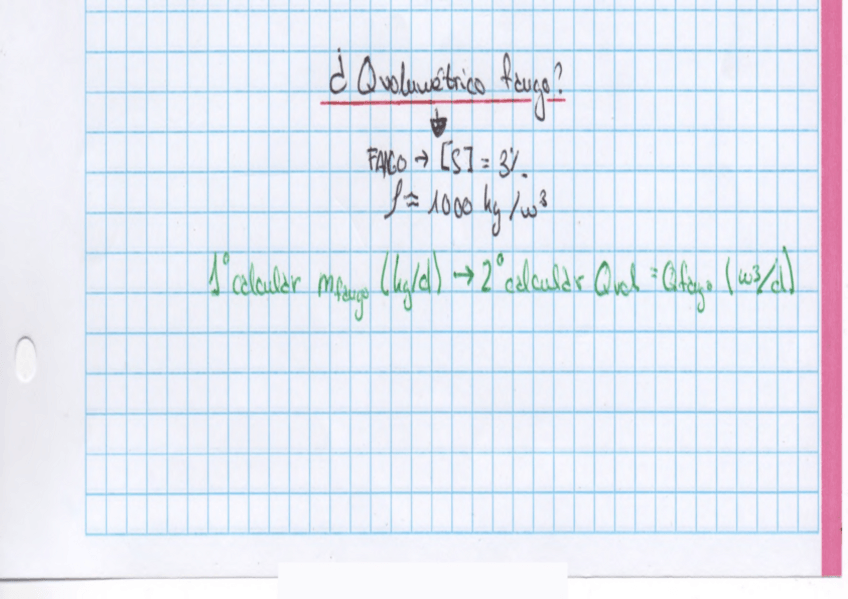 ¿Qvolumétrico fango?
↓
FANGO → [S] = 3%.
ρ ≈ 1000 kg/m³
1º calcular mfango (kg/d) → 2º calcular Qvol = Qfango (m3/d)